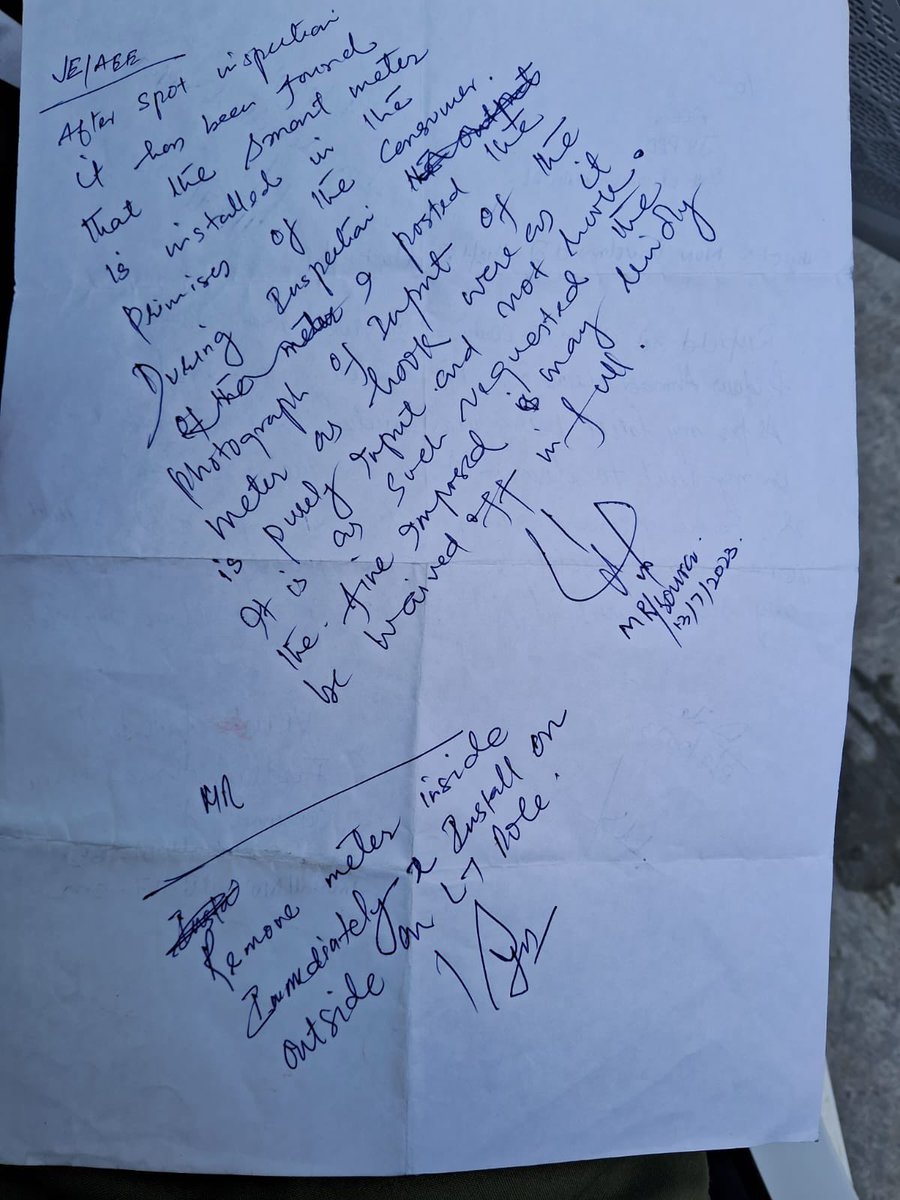 JE/AEE
After spot inspection
it has been found
that the smart meter
is installed in the
Primises of the Consumer.
During Inspection
I posted the
photograph of Input of the
meter as hook were as it
is purely Input and not hook.
It is as such requested the
the fine imposed may kindly
be waived off in full.
MR/
13/7/2023.
MR
Remove meter inside
Immediately & Install on
outside on LT Pole.